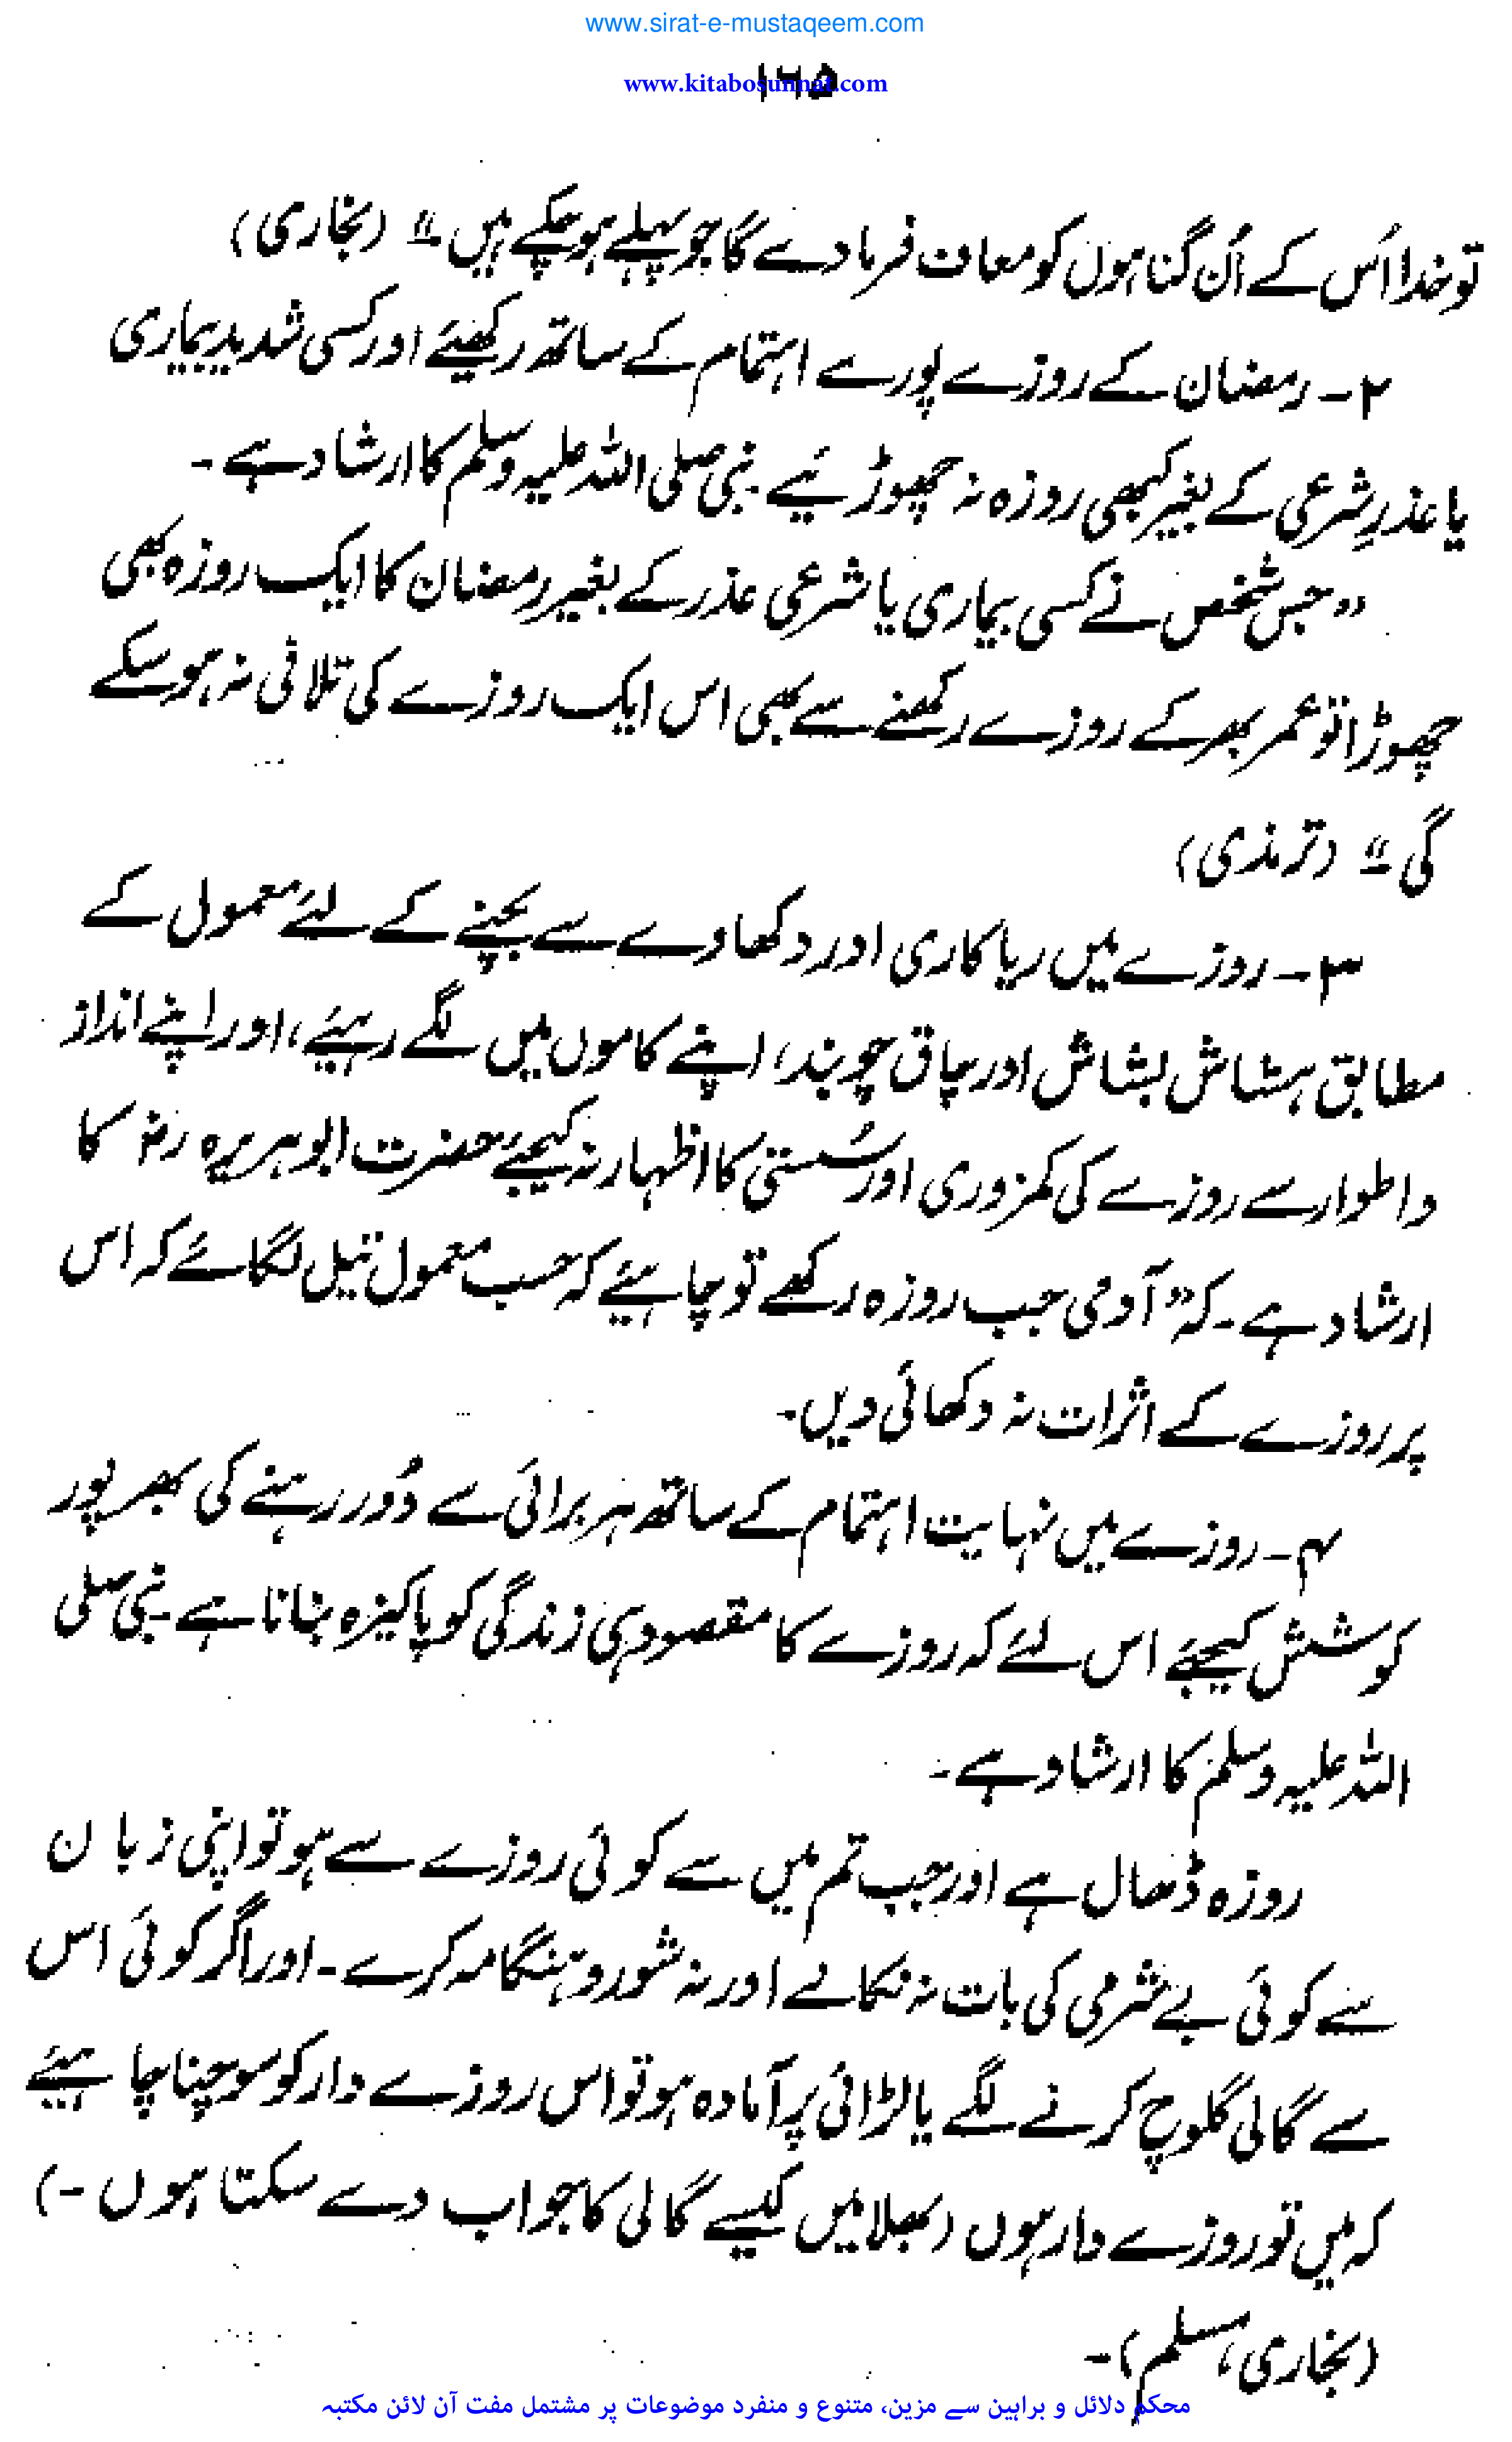 www.sirat-e-mustaqeem.com
۱۶۵
www.kitabosunnat.com
تو خدا اُس کے اُن گناہوں کو معاف فرما دے گا جو پہلے ہو چکے ہیں ۔" (بخاری)
۲ ۔ رمضان کے روزے پورے اہتمام کے ساتھ رکھیئے اور کسی شدید بیماری
یا عذرِ شرعی کے بغیر کبھی روزہ نہ چھوڑئیے ۔ نبی صلی اللہ علیہ وسلم کا ارشاد ہے ۔
"جس شخص نے کسی بیماری یا شرعی عذر کے بغیر رمضان کا ایک روزہ بھی
چھوڑا تو عمر بھر کے روزے رکھنے سے بھی اس ایک روزے کی تلافی نہ ہو سکے
گی ۔" (ترمذی)
۳ ۔ روزے میں ریا کاری اور دکھاوے سے بچنے کے لئے معمول کے
مطابق ہشاش بشاش اور چاق چوبند، اپنے کاموں میں لگے رہیئے، اور اپنے انداز
و اطوار سے روزے کی کمزوری اور سُستی کا اظہار نہ کیجئے حضرت ابو ہریرہ رضؓ کا
ارشاد ہے ۔ کہ "آدمی جب روزہ رکھے تو چاہیئے کہ حسب معمول تیل لگائے کہ اس
پر روزے کے اثرات نہ دکھائی دیں ۔
۴ ۔ روزے میں نہایت اہتمام کے ساتھ ہر برائی سے دُور رہنے کی بھرپور
کوشش کیجئے اس لئے کہ روزے کا مقصود ہی زندگی کو پاکیزہ بنانا ہے ۔ نبی صلی
اللہ علیہ وسلم کا ارشاد ہے ۔
روزہ ڈھال ہے اور جب تم میں سے کوئی روزے سے ہو تو اپنی زبان
سے کوئی بے شرمی کی بات نہ نکالے اور نہ شور و ہنگامہ کرے ۔ اور اگر کوئی اس
سے گالی گلوچ کرنے لگے یا لڑائی پر آمادہ ہو تو اس روزے دار کو سوچنا چاہیئے
کہ میں تو روزے دار ہوں (بھلا میں کیسے گالی کا جواب دے سکتا ہوں ۔)
(بخاری، مسلم) ۔
محکم دلائل و براہین سے مزین، متنوع و منفرد موضوعات پر مشتمل مفت آن لائن مکتبہ